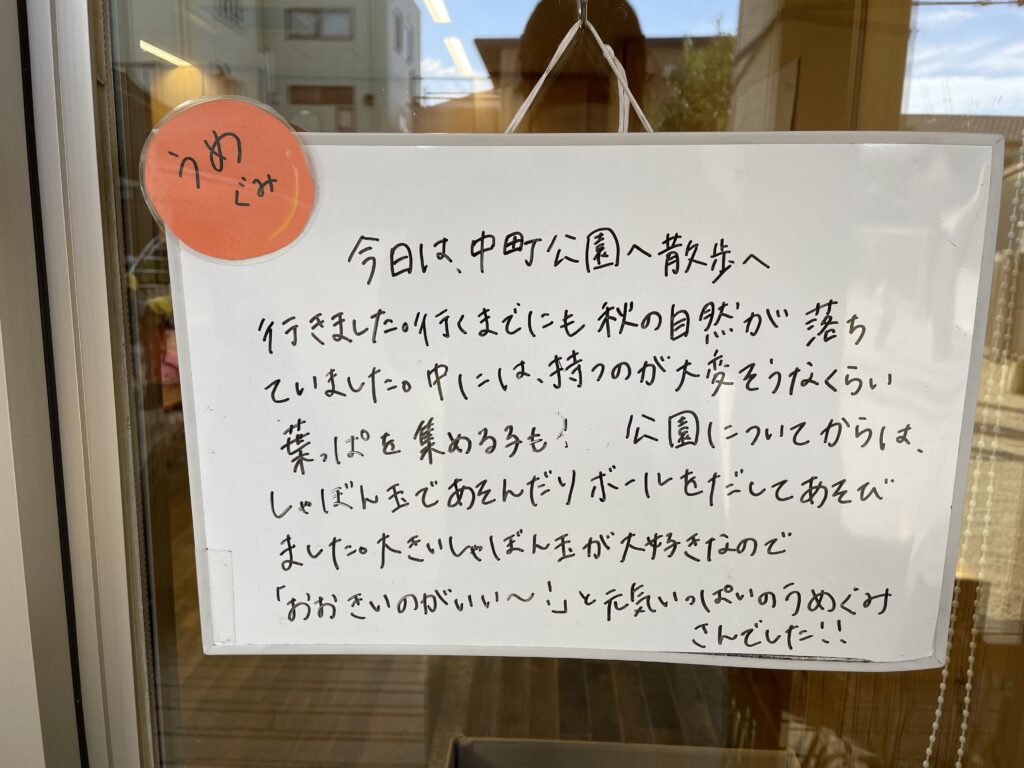 うめ
ぐみ
今日は、中町公園へ散歩へ
行きました。行くまでにも秋の自然が落ち
ていました。中には、持つのが大変そうなくらい
葉っぱを集める子も！ 公園についてからは、
しゃぼん玉であそんだりボールをだしてあそび
ました。大きいしゃぼん玉が大好きなので
「おおきいのがいい〜！」と元気いっぱいのうめぐみ
さんでした！！